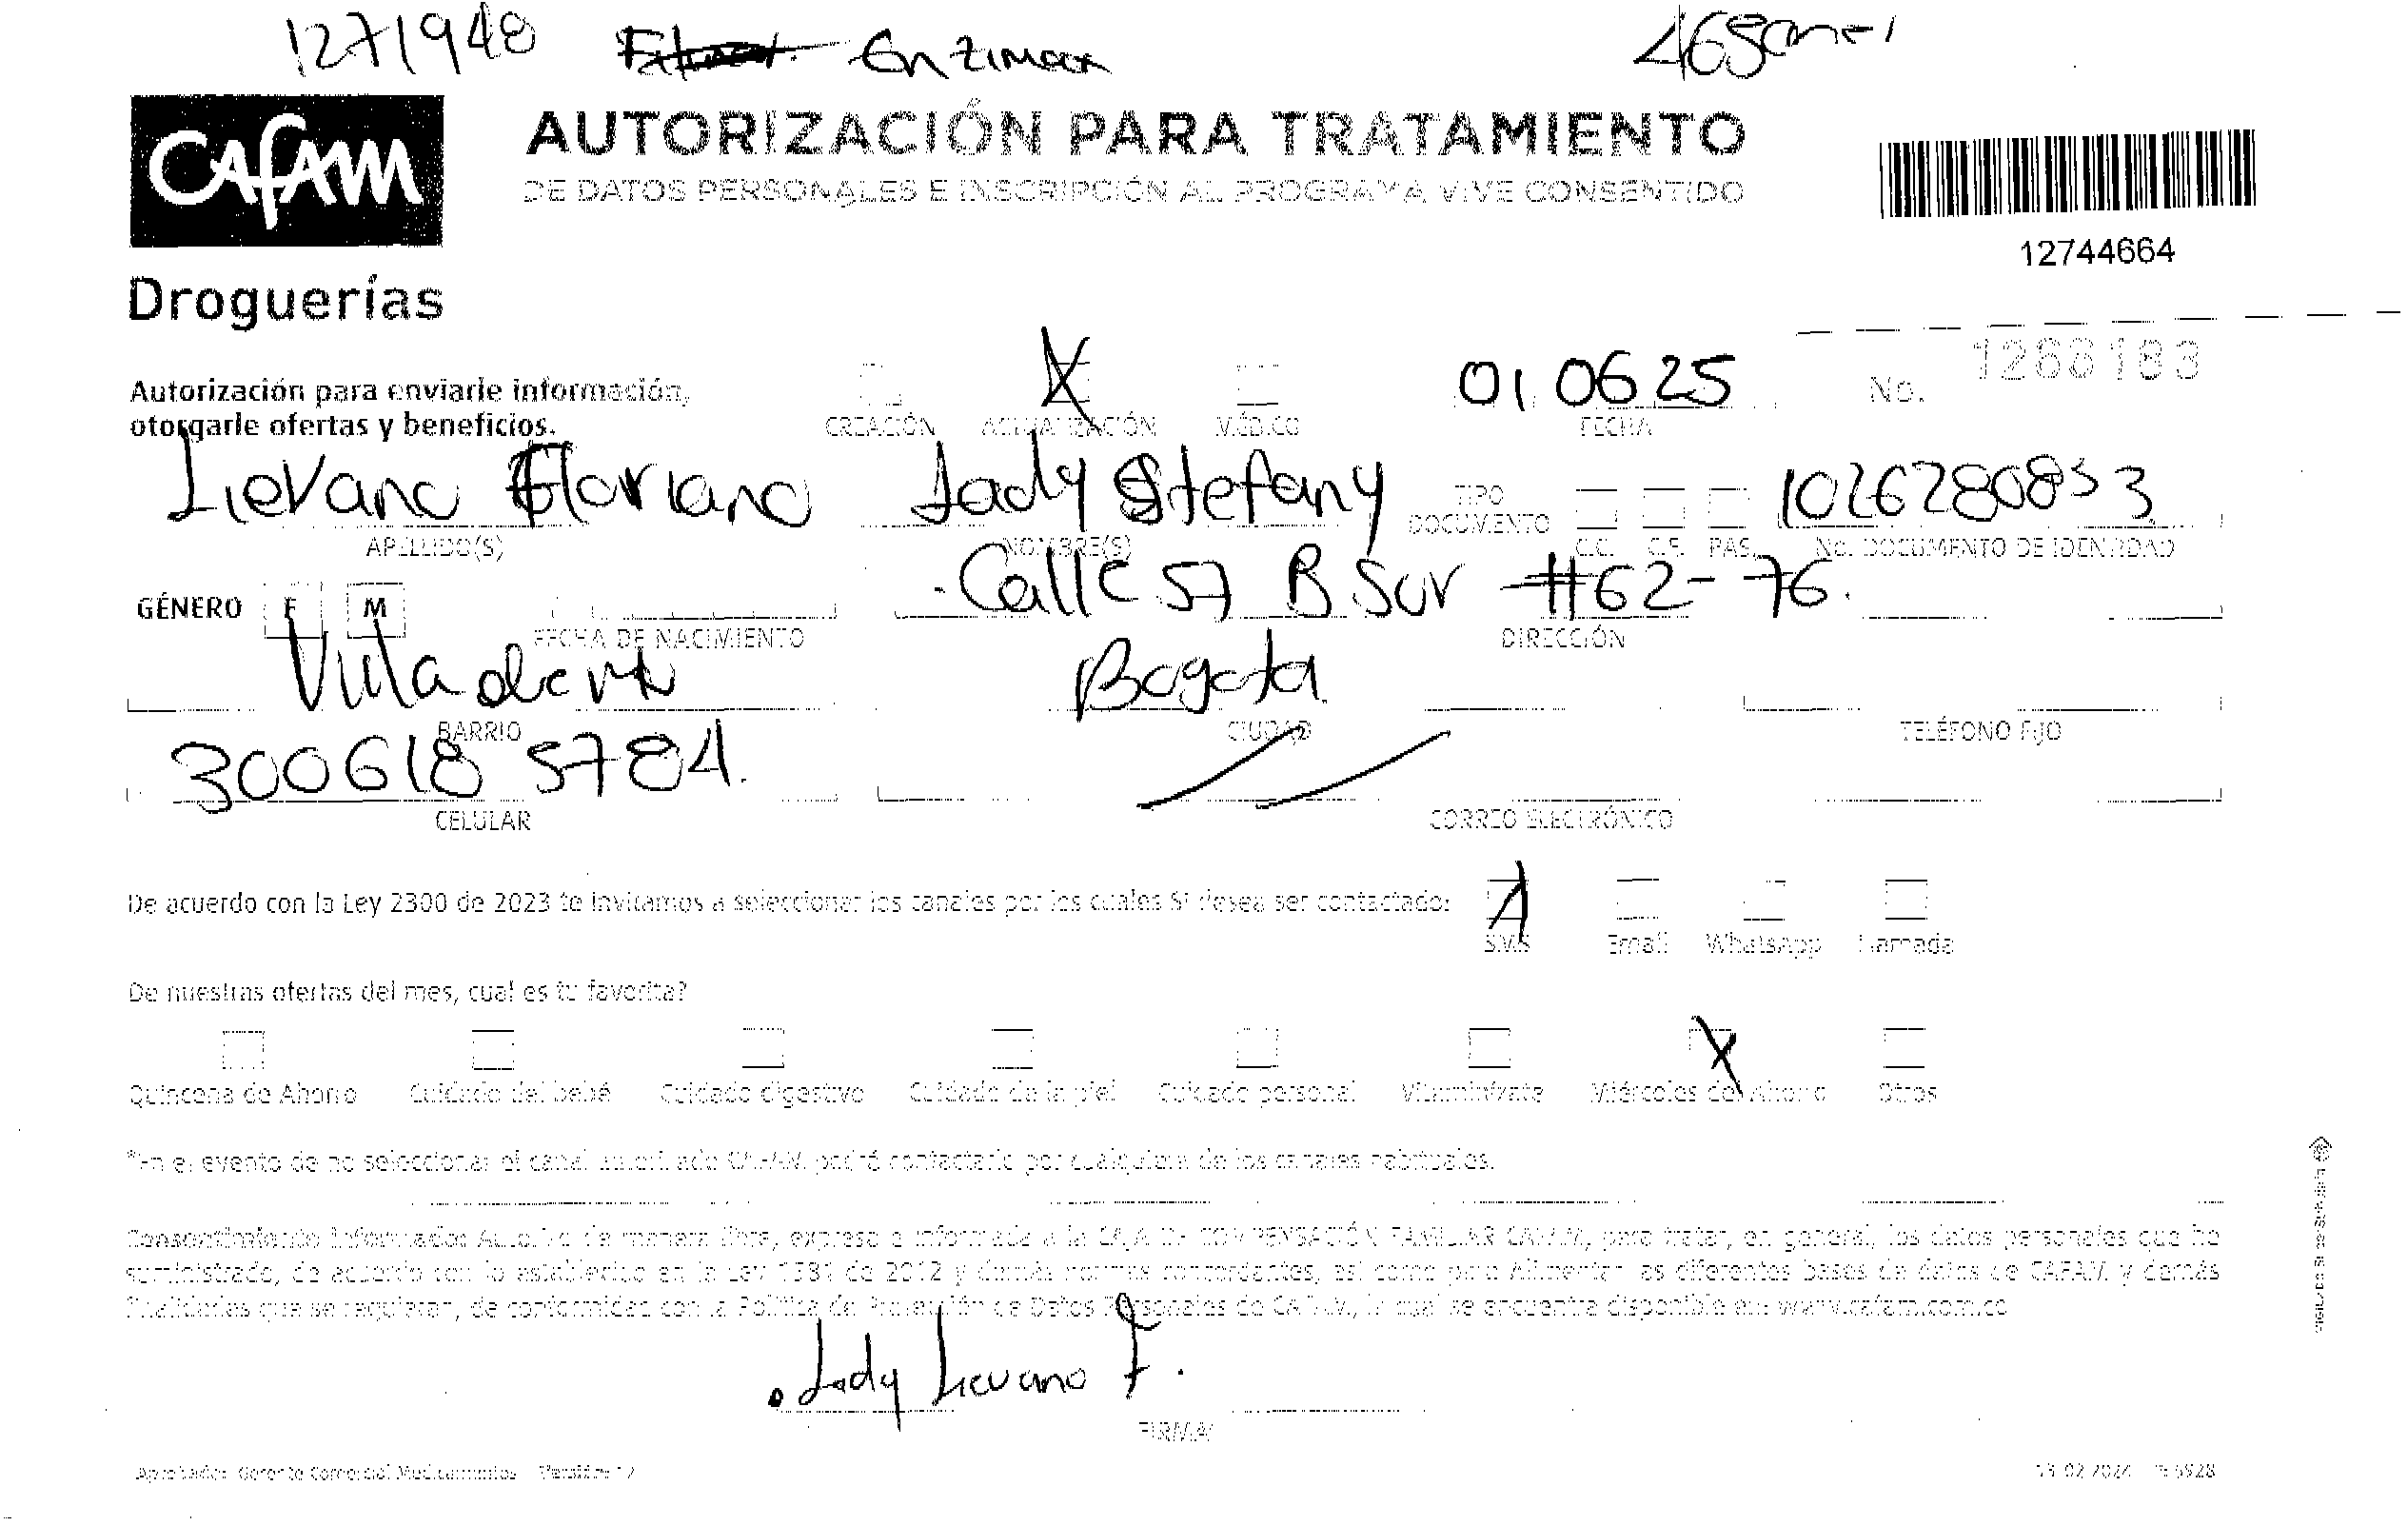 1271948 Enzimax
CAFAM
Droguerías
AUTORIZACIÓN PARA TRATAMIENTO
DE DATOS PERSONALES E INSCRIPCIÓN AL PROGRAMA VIVE CONSENTIDO
12744664
Autorización para enviarle información,
otorgarle ofertas y beneficios.
CREACIÓN ACTUALIZACIÓN MÉDICO
01 06 25
FECHA
No. 1268183
Lievano Floriano Lady Stefany 1026280853
APELLIDO(S) NOMBRE(S) TIPO DOCUMENTO C.C. C.E. PAS. No. DOCUMENTO DE IDENTIDAD
GÉNERO F M Calle 57 B Sur #62-76.
FECHA DE NACIMIENTO DIRECCIÓN
Bogota
BARRIO CIUDAD TELÉFONO FIJO
300618 5784.
CELULAR CORREO ELECTRÓNICO
De acuerdo con la Ley 2300 de 2023 te invitamos a seleccionar los canales por los cuales SI desea ser contactado:
SMS Email WhatsApp Llamada
De nuestras ofertas del mes, cual es tu favorita?
Quincena de Ahorro Cuidado del bebé Cuidado digestivo Cuidado de la piel Cuidado personal Vitamínfvrate Miércoles del Ahorro Otros
*En el evento de no seleccionar el canal autorizado CAFAM podrá contactarlo por cualquiera de los canales habituales.
Consentimiento Informado: Autorizo de manera libre, expresa e informada a la CAJA DE COMPENSACIÓN FAMILIAR CAFAM, para tratar, en general, los datos personales que he
suministrado, de acuerdo con lo establecido en la Ley 1581 de 2012 y demás normas concordantes, así como para Alimentar las diferentes bases de datos de CAFAM y demás
finalidades que se requieran, de conformidad con la Política de Protección de Datos Personales de CAFAM, la cual se encuentra disponible en: www.cafam.com.co
Lady Lievano F.
FIRMA
Aprobador Gerente Comercial Medicamentos Versión 12